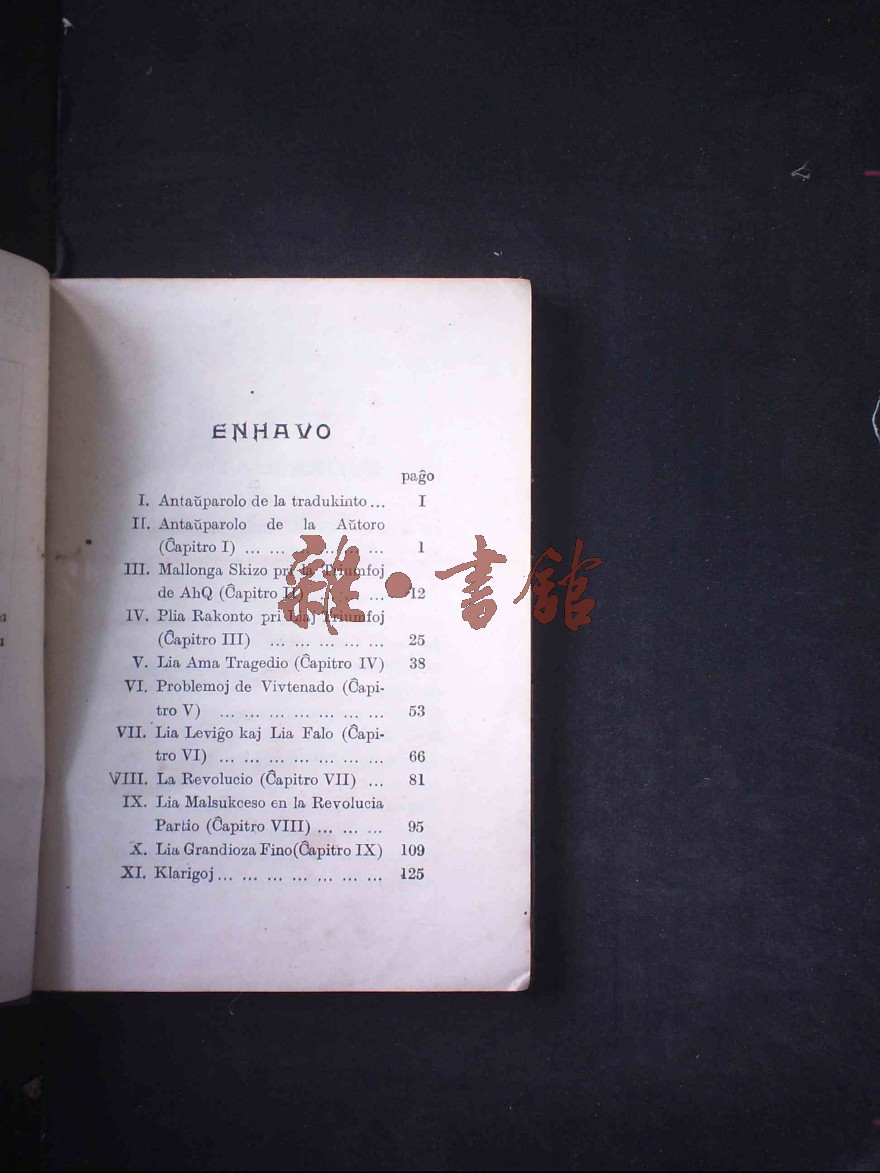 ENHAVO
paĝo
I. Antaŭparolo de la tradukinto ... I
II. Antaŭparolo de la Aŭtoro
(Ĉapitro I) ... ... ... ... ... ... 1
III. Mallonga Skizo pri la Triumfoj
de AhQ (Ĉapitro II) ... ... ... 12
IV. Plia Rakonto pri Liaj Triumfoj
(Ĉapitro III) ... ... ... ... ... 25
V. Lia Ama Tragedio (Ĉapitro IV) 38
VI. Problemoj de Vivtenado (Ĉapi-
tro V) ... ... ... ... ... ... ... 53
VII. Lia Leviĝo kaj Lia Falo (Ĉapi-
tro VI) ... ... ... ... ... ... ... 66
VIII. La Revolucio (Ĉapitro VII) ... 81
IX. Lia Malsukceso en la Revolucia
Partio (Ĉapitro VIII) ... ... ... 95
X. Lia Grandioza Fino(Ĉapitro IX) 109
XI. Klarigoj ... ... ... ... ... ... ... 125
雜·書館